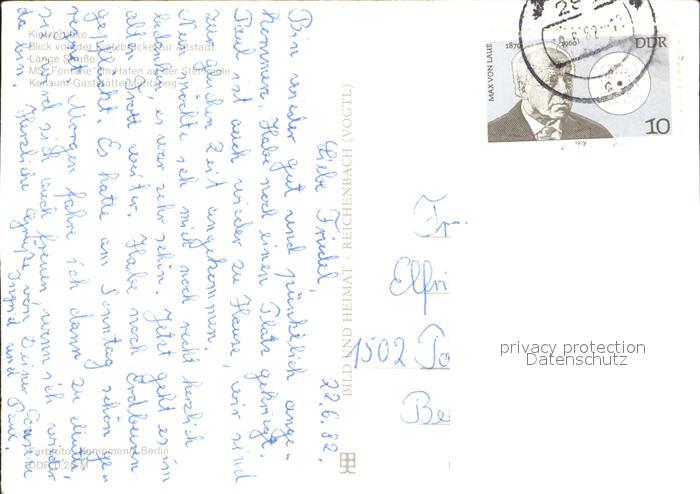 Kietzbrücke
Blick von der Kietzbrücke zur Altstadt
Lange Straße
MS „Fontane“ im Hafen an der Steinmole
Konsum-Gaststätte Müritzring
Farbfoto: Kempmann, Berlin
DDR 0,20 M
BILD UND HEIMAT · REICHENBACH (VOGTL)
22.6.82.
Liebe Friedel,
Bin wieder gut und pünktlich ange-
kommen. Habe noch einen Platz gekriegt.
Paul ist auch wieder zu Hause, wir sind
zur gleichen Zeit angekommen.
Nun möchte ich mich noch recht herzlich
bedanken, es war sehr schön. Jetzt geht es im
alten Trott weiter. Habe noch Erdbeeren
gepflückt. Es hatte am Sonntag schön ge-
regnet. Morgen fahre ich dann zu
sie wird sich auch freuen, wenn ich wieder
da bin. Herzliche Grüße von Deiner
Ingrid und Paul.
MAX VON LAUE
1879 1960
DDR
10
1979
Fr.
Elfri
1502 Po
Be
privacy protection
Datenschutz